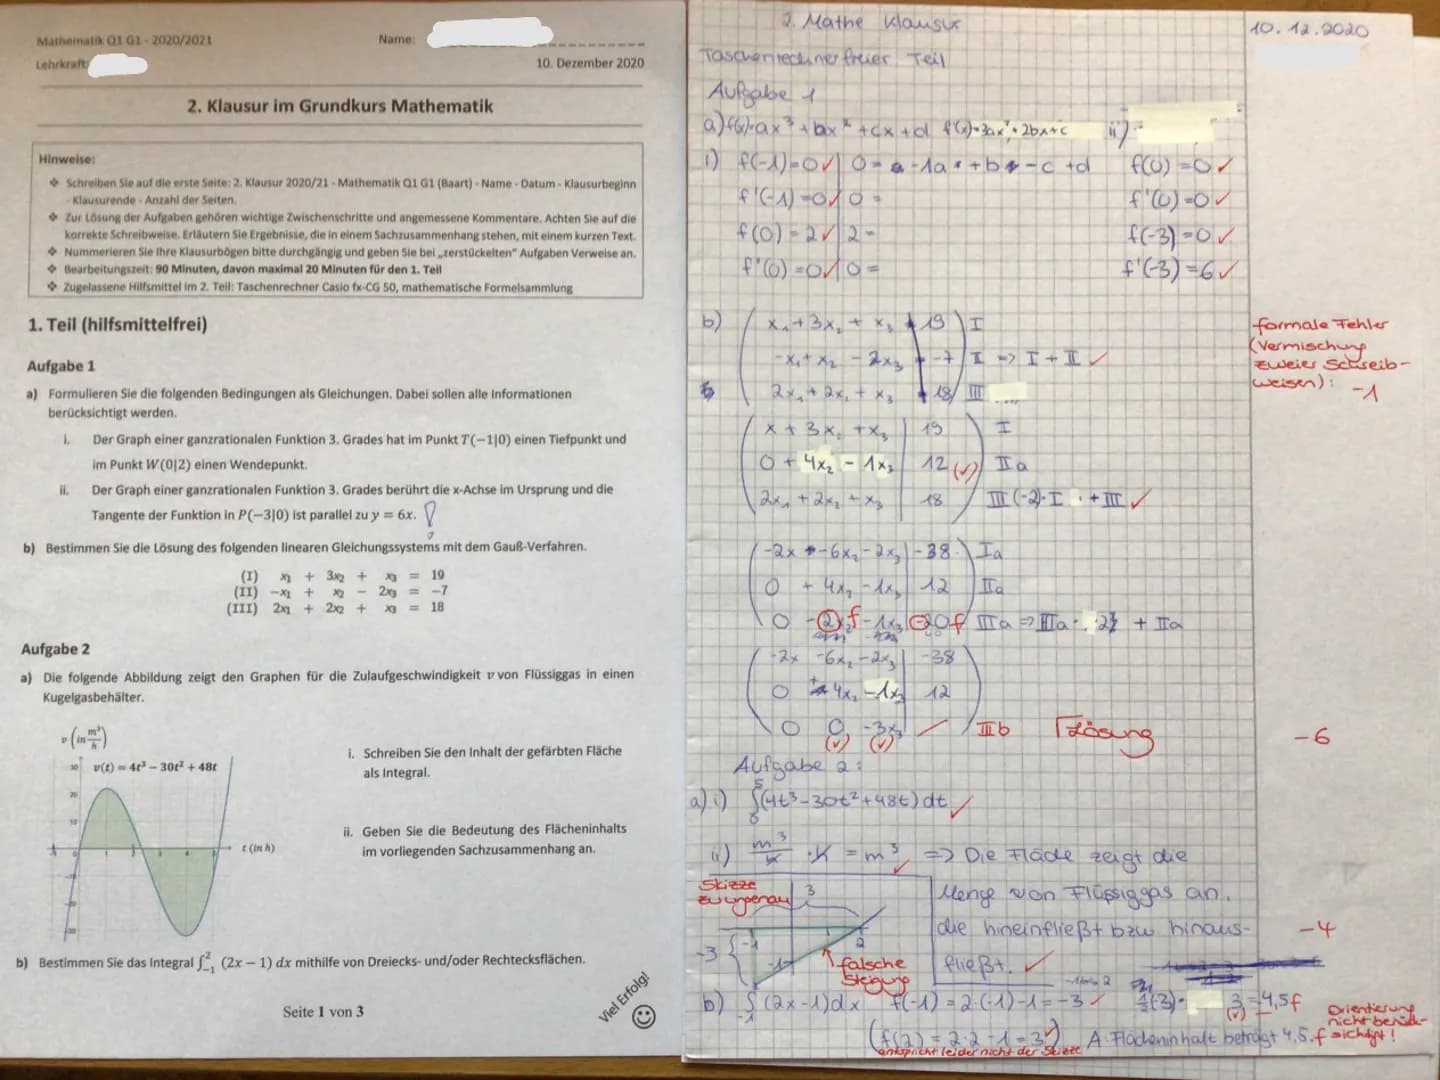 Mathematik Q1 G1 - 2020/2021
Name:
Lehrkraft:
10. Dezember 2020
2. Klausur im Grundkurs Mathematik
Hinweise:
❖ Schreiben Sie auf die erste Seite: 2. Klausur 2020/21 - Mathematik Q1 G1 (Baart) - Name - Datum - Klausurbeginn
- Klausurende - Anzahl der Seiten.
❖ Zur Lösung der Aufgaben gehören wichtige Zwischenschritte und angemessene Kommentare. Achten Sie auf die
korrekte Schreibweise. Erläutern Sie Ergebnisse, die in einem Sachzusammenhang stehen, mit einem kurzen Text.
❖ Nummerieren Sie Ihre Klausurbögen bitte durchgängig und geben Sie bei „zerstückelten" Aufgaben Verweise an.
❖ Bearbeitungszeit: 90 Minuten, davon maximal 20 Minuten für den 1. Teil
❖ Zugelassene Hilfsmittel im 2. Teil: Taschenrechner Casio fx-CG 50, mathematische Formelsammlung
1. Teil (hilfsmittelfrei)
Aufgabe 1
a) Formulieren Sie die folgenden Bedingungen als Gleichungen. Dabei sollen alle Informationen
berücksichtigt werden.
i. Der Graph einer ganzrationalen Funktion 3. Grades hat im Punkt T(−1|0) einen Tiefpunkt und
im Punkt W(0|2) einen Wendepunkt.
ii. Der Graph einer ganzrationalen Funktion 3. Grades berührt die x-Achse im Ursprung und die
Tangente der Funktion in P(−3|0) ist parallel zu y = 6x.
b) Bestimmen Sie die Lösung des folgenden linearen Gleichungssystems mit dem Gauß-Verfahren.
(I) x₁ + 3x₂ + x₃ = 19
(II) −x₁ + x₂ − 2x₃ = −7
(III) 2x₁ + 2x₂ + x₃ = 18
Aufgabe 2
a) Die folgende Abbildung zeigt den Graphen für die Zulaufgeschwindigkeit v von Flüssiggas in einen
Kugelgasbehälter.
v (in m³/h)
30 v(t) = 4t³ − 30t² + 48t
t (in h)
i. Schreiben Sie den Inhalt der gefärbten Fläche
als Integral.
ii. Geben Sie die Bedeutung des Flächeninhalts
im vorliegenden Sachzusammenhang an.
b) Bestimmen Sie das Integral ∫₋₁² (2x − 1) dx mithilfe von Dreiecks- und/oder Rechtecksflächen.
Seite 1 von 3
Viel Erfolg! ☺
2. Mathe Klausur
10.12.2020
Taschenrechnerfreier Teil
Aufgabe 1
a) f(x)=ax³+bx²+cx+d f'(x)=3ax²+2bx+c ii)
i) f(-1)=0 ✓ 0= -1a+b-c+d f(0)=0 ✓
f'(-1)=0 ✓ 0= f'(0)=0 ✓
f(0)=2 ✓ 2= f(-3)=0 ✓
f"(0)=0 ✓ 0= f'(-3)=6 ✓
b) x₁+3x₂+x₃ 19 I
-x₁+x₂-2x₃ -7 II => I+II ✓
2x₁+2x₂+x₃ 18 III
formale Fehler
(Vermischung
zweier Schreib-
weisen): -1
x+3x₂+x₃ | 19 I
0+4x₂-1x₃ | 12 (✓) IIa
2x₁+2x₂+x₃ | 18 III (-2)·I +III ✓
-2x-6x₂-2x₃ | -38 Ia
0+4x₂-1x₃ | 12 IIa
0-2x₂ f -1x₃ -20 f IIIa => IIIa·2 + IIa
-2x-6x₂-2x₃ | -38
0+4x₂-1x₃ | 12
0 0 -3x₃ IIIb Γ Lösung -6
(✓) (✓)
Aufgabe 2:
a) i) ∫₀⁵(4t³-30t²+48t)dt ✓
ii) m³/h · h = m³ ✓ => Die Fläche zeigt die
Menge von Flüssiggas an,
die hineinfließt bzw. hinaus-
fließt. ✓
-4
Skizze
zu ungenau
3
-3
-1
2
-1
falsche
Steigung
b) ∫₋₁²(2x-1)dx f(-1)=2·(-1)-1=-3 ✓ ½(-3)· 3=4,5 f
(✓)
(f(2)=2·2-1=3 ✓) A: Flächeninhalt beträgt 4,5. f
entspricht leider nicht der Skizze
Orientierung
nicht berück-
sichtigt!